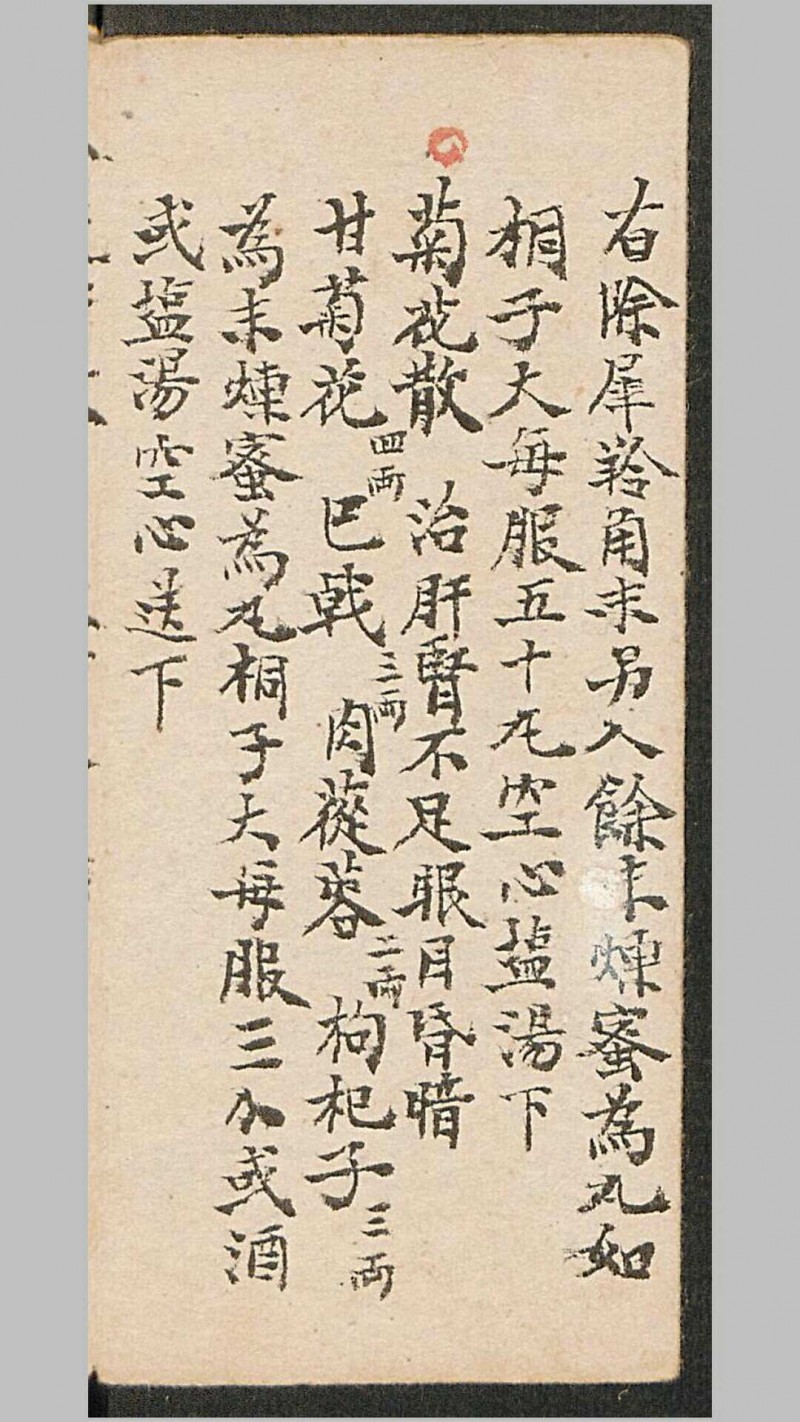 右除犀羚角末另入餘末煉蜜為丸如
桐子大每服五十丸空心塩湯下
菊花散　治肝腎不足眼目昏暗
甘菊花四両　巴戟三両　肉蓯蓉二両　枸杞子三両
為末煉蜜為丸桐子大每服三分或酒
或塩湯空心送下